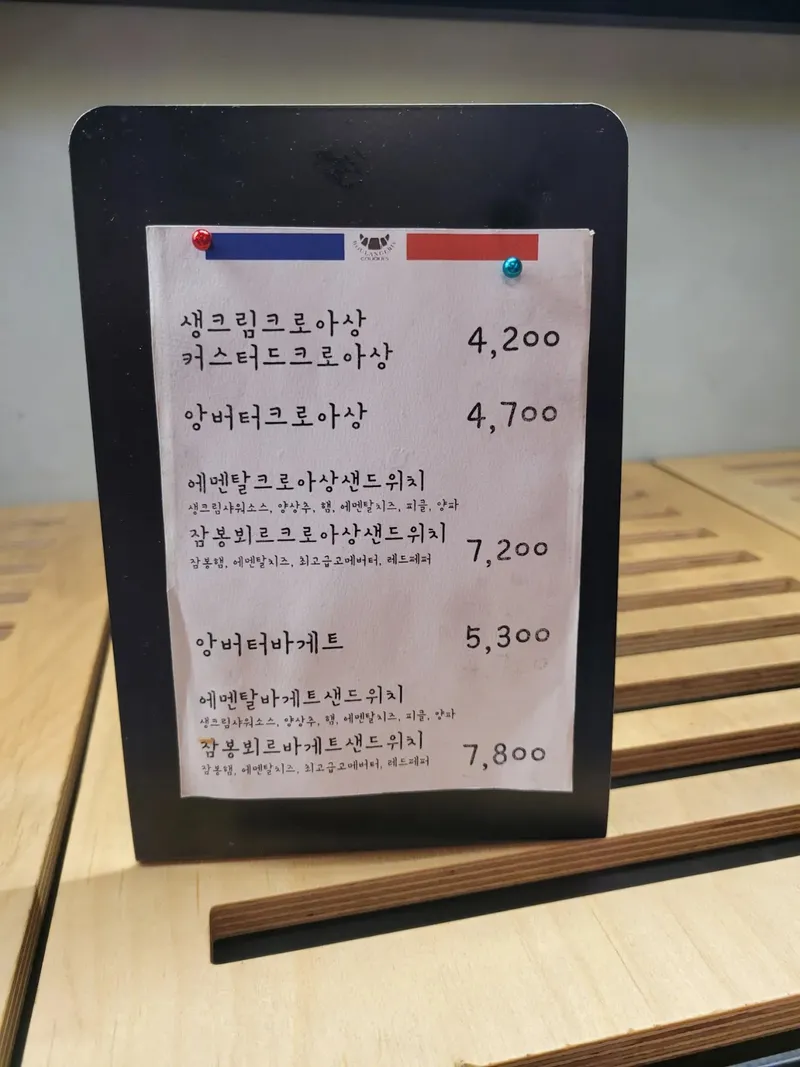 생크림크로아상
커스터드크로아상 4,200
앙버터크로아상 4,700
에멘탈크로아상샌드위치
생크림샤워소스, 양상추, 햄, 에멘탈치즈, 피클, 양파
잠봉뵈르크로아상샌드위치 7,200
잠봉햄, 에멘탈치즈, 최고급고메버터, 레드페퍼
앙버터바게트 5,300
에멘탈바게트샌드위치
생크림샤워소스, 양상추, 햄, 에멘탈치즈, 피클, 양파
잠봉뵈르바게트샌드위치 7,800
잠봉햄, 에멘탈치즈, 최고급고메버터, 레드페퍼